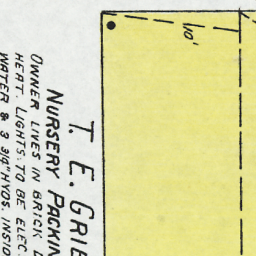 T. E. GRIE
NURSERY PACKIN
OWNER LIVES IN BRICK D
HEAT. LIGHTS: TO BE ELEC.
WATER & 3 3/4" HYDS. INSID
10'